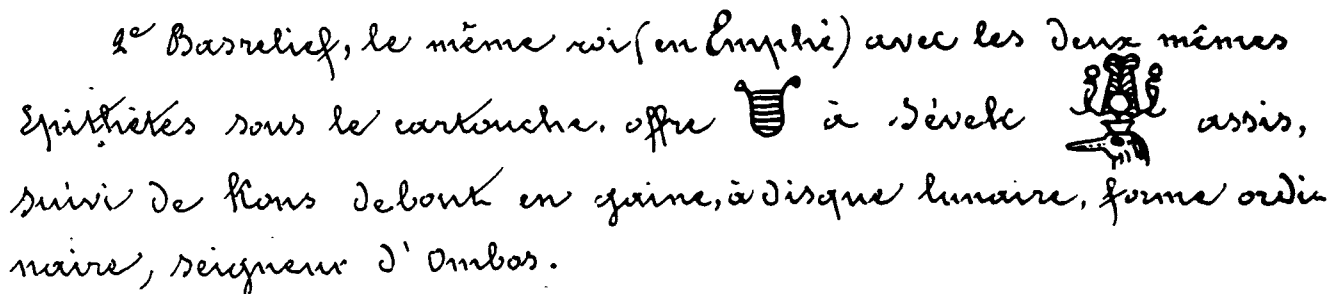 2e Basrelief, le même roi (en Emphé) avec les deux mêmes
Epithètes sous le cartouche. offre à Sévek assis,
suivi de Kons debout en gaine, à disque lunaire, forme ordi-
naire, seigneur d'Ombos.